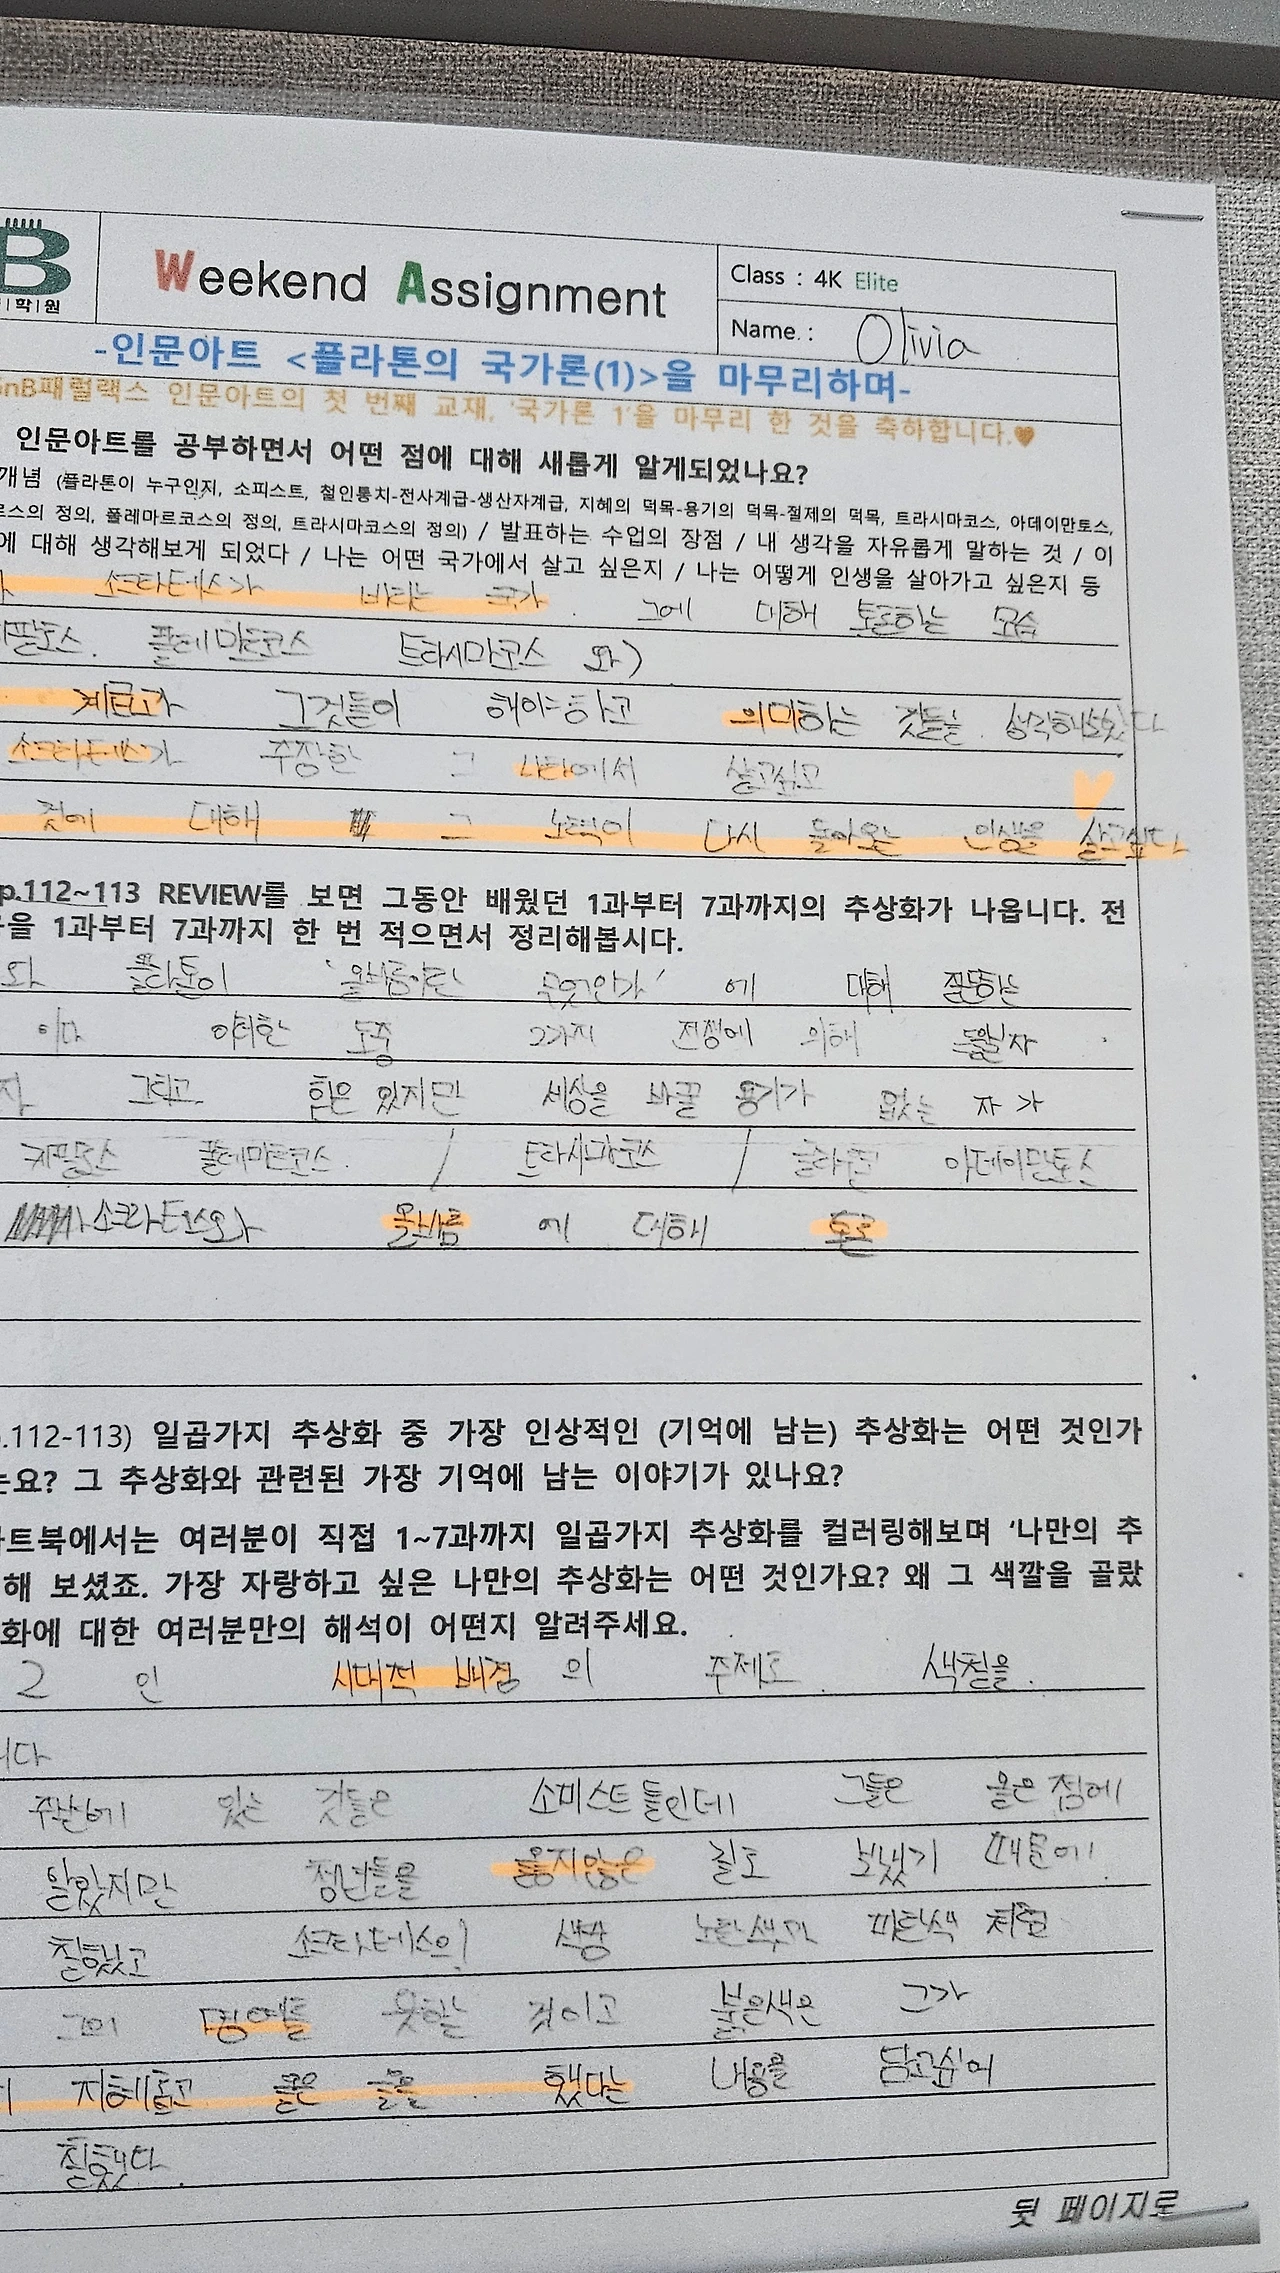 B
학원
Weekend Assignment
Class : 4K Elite
Name : Olivia
-인문아트 <플라톤의 국가론(1)>을 마무리하며-
GnB패럴랙스 인문아트의 첫 번째 교재, '국가론 1'을 마무리 한 것을 축하합니다.♥
인문아트를 공부하면서 어떤 점에 대해 새롭게 알게되었나요?
개념 (플라톤이 누구인지, 소피스트, 철인통치-전사계급-생산자계급, 지혜의 덕목-용기의 덕목-절제의 덕목, 트라시마코스, 아데이만토스,
로스의 정의, 폴레마르코스의 정의, 트라시마코스의 정의) / 발표하는 수업의 장점 / 내 생각을 자유롭게 말하는 것 / 이
에 대해 생각해보게 되었다 / 나는 어떤 국가에서 살고 싶은지 / 나는 어떻게 인생을 살아가고 싶은지 등
소크라테스가 바라는 국가. 그에 대해 토론하는 모습
케팔로스. 폴레마르코스 트라시마코스 와)
계급과 그것들이 해야하고 의미하는 것들을 생각해보았다
소크라테스가 주장한 그 나라에서 살고싶고
것에 대해 그 노력이 다시 돌아오는 인생을 살고싶다
p.112~113 REVIEW를 보면 그동안 배웠던 1과부터 7과까지의 추상화가 나옵니다. 전
을 1과부터 7과까지 한 번 적으면서 정리해봅시다.
와 플라톤이 '올바름이란 무엇인가' 에 대해 질문하는
이다 이러한 도중 2가지 전쟁에 의해
그리고 힘은 있지만 세상을 바꿀 용기가 없는 자가
케팔로스 폴레마르코스. / 트라시마코스 / 글라우콘 아데이만토스
소크라테스와 올바름 에 대해 토론
p.112-113) 일곱가지 추상화 중 가장 인상적인 (기억에 남는) 추상화는 어떤 것인가
는요? 그 추상화와 관련된 가장 기억에 남는 이야기가 있나요?
아트북에서는 여러분이 직접 1~7과까지 일곱가지 추상화를 컬러링해보며 '나만의 추
해 보셨죠. 가장 자랑하고 싶은 나만의 추상화는 어떤 것인가요? 왜 그 색깔을 골랐
화에 대한 여러분만의 해석이 어떤지 알려주세요.
2 인 시대적 배경 의 주제로 색칠을.
니다
주변에 있는 것들은 소피스트들인데 그들은 옳은 점에
알았지만 청년들을 옳지않은 길로 보냈기 때문에
칠했고 소크라테스의 색상 노란색과 파란색 처럼
그의 명예를 뜻하는 것이고 붉은색은 그가
지혜롭고 좋은 글을 했다는 내용을 담고싶어
칠했다.
뒷 페이지로